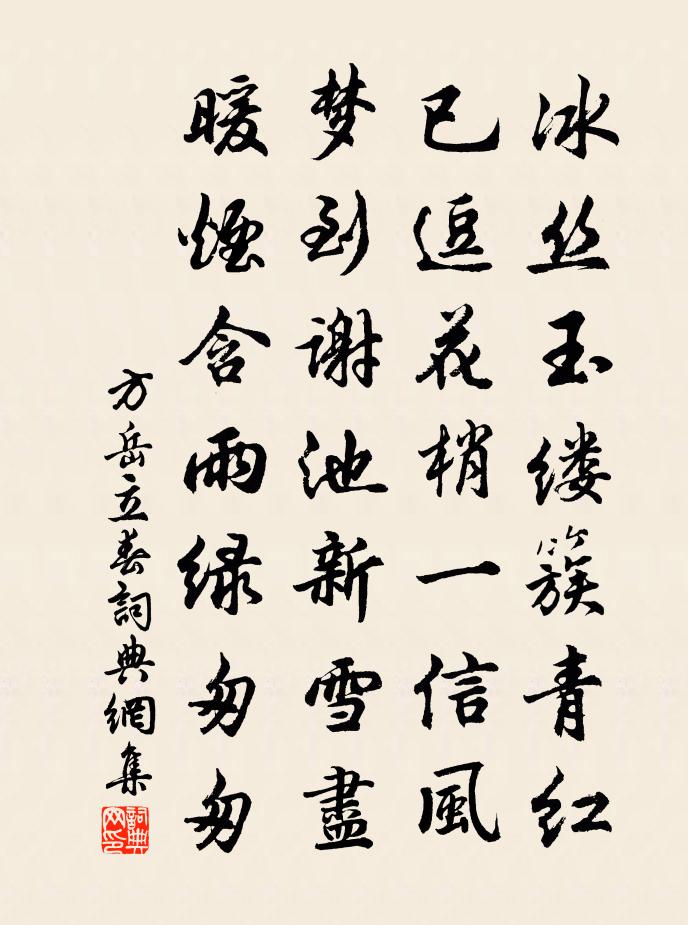 冰丝玉缕簇青红
已逗花梢一信風
梦到谢池新雪盡
暖煙含雨绿匆匆
方岳立春詞典網集
詞典网印